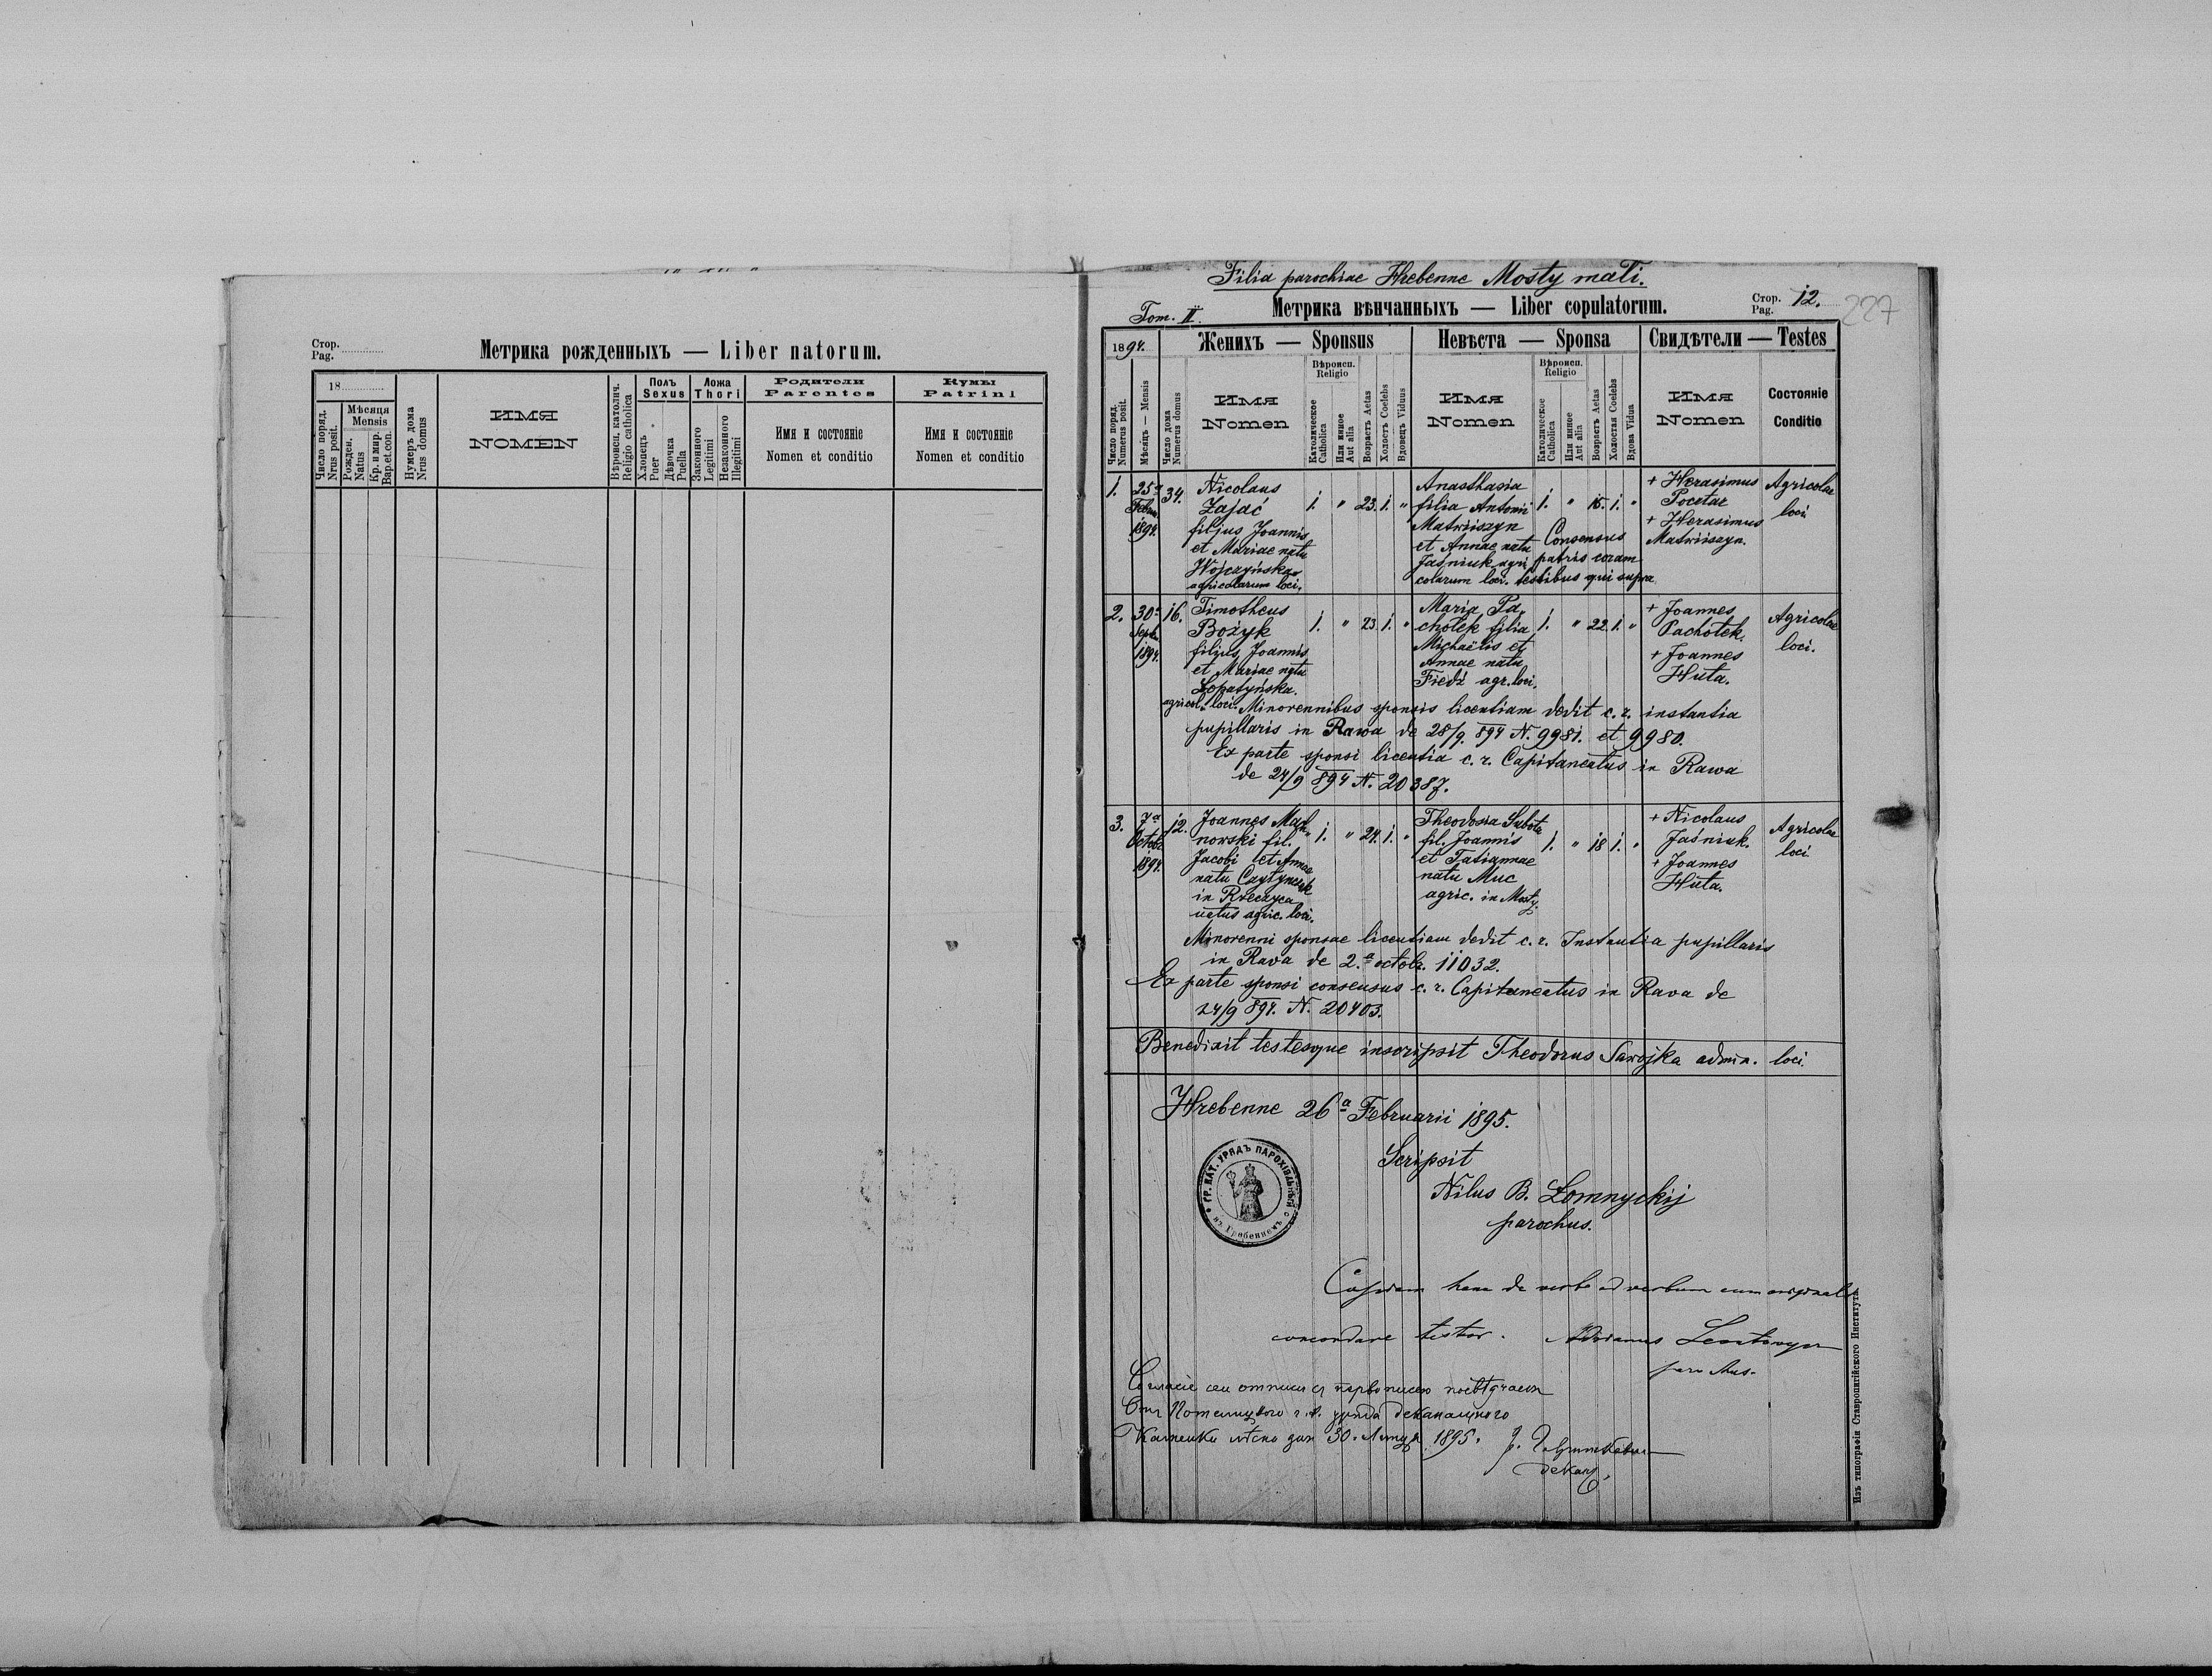 Стор.
Pag.
Метрика рожденныхъ — Liber natorum.
18
Число поряд.
Nrus posit.
Мѣсяця
Mensis
Рожден.
Natus
Кр. и мир.
Bap.et.con.
Нумеръ дома
Nrus domus
ИМЯ
NOMEN
Вѣроисп. католич.
Religio catholica
Полъ
Sexus
Хлопецъ
Puer
Дѣвочка
Puella
Ложа
Thori
Законного
Legitimi
Незаконного
Illegitimi
Родители
Parentes
Имя и состояніе
Nomen et conditio
Кумы
Patrini
Имя и состояніе
Nomen et conditio
Filia parochiae Hrebenne Mosty mali.
Tom. II.
Метрика вѣнчанныхъ — Liber copulatorum.
Стор.
Pag. 12.
227
1894.
Женихъ — Sponsus
Невѣста — Sponsa
Свидѣтели — Testes
Число поряд.
Numerus posit.
Мѣсяць — Mensis
Число дома
Numerus domus
Имя
Nomen
Вѣроисп.
Religio
Католическое
Catholica
Или инное
Aut alia
Возрастъ Aetas
Холостъ Coelebs
Вдовецъ Viduus
Имя
Nomen
Вѣроисп.
Religio
Католическое
Catholica
Или инное
Aut alia
Возрастъ Aetas
Холостая Coelebs
Вдова Vidua
Имя
Nomen
Состояніе
Conditio
1.
25a
Febru.
1894.
34.
Nicolaus
Zajać
filjus Joannis
et Mariae nata
Wojczyńska
agricolarum loci.
1. " 23. 1. "
Anasthasia
filia Antonii
Matwiiszyn
et Annae nata
Jaśniuk agri
colarum loci.
1. " 15. 1. "
Consensus
patris coram
testibus qui supra
+ Herasimus
Pocztar
+ Herasimus
Matwiiszyn.
Agricolae
loci.
2.
30a
Septe.
1894.
16.
Timotheus
Bożyk
filjus Joannis
et Mariae nata
Łopatyńska.
agricol. loci.
1. " 23. 1. "
Maria Pa
chołek filia
Michaëlis et
Annae nata
Fiedź agr. loci.
1. " 22. 1. "
+ Joannes
Pachołek.
+ Joannes
Huta.
Agricolae
loci.
Minorennibus sponsis licentiam dedit c. r. instantia
pupillaris in Rawa de 28/9. 894 N. 9981. et 9980.
Ex parte sponsi licentia c. r. Capitaneatus in Rawa
de 24/9 894 N. 20387.
3.
7a
Octobr.
1894.
12.
Joannes Mali
nowski fil.
Jacobi et Annae
natu
in Rzeczyca
natus agric. loci.
1. " 24. 1. "
Theodosia Subota
fil. Joannis
et Tatiannae
natu Muc
agric. in Mosty.
1. " 18 1. "
+ Nicolaus
Jaśniuk.
+ Joannes
Huta.
Agricolae
loci
Minorenni sponsae licentiam dedit c. r. Instantia pupillaris
in Rava de 2.a octobr. 11032.
Ex parte sponsi consensus c. r. Capitaneatus in Rava de
24/9 894. N. 20403.
Benedixit testesque inscripsit Theodorus Sawojka admin. loci.
Hrebenne 26a Februarii 1895.
ГР. КАТ. УРЯДЪ ПАРОХІЯЛЬНЫЙ
въ Гребенномъ
Scripsit
Nilus B. Łomnyckij
parochus.
Copiam hanc de verbo ad verbum cum originali
concordare testor. Adrianus
parochus.
Согласіе сеи отписи съ первописею
Отъ г. к. уряда деканального
дня 30. 1895.
деканъ,
Изъ типографіи Ставропигійского Института.